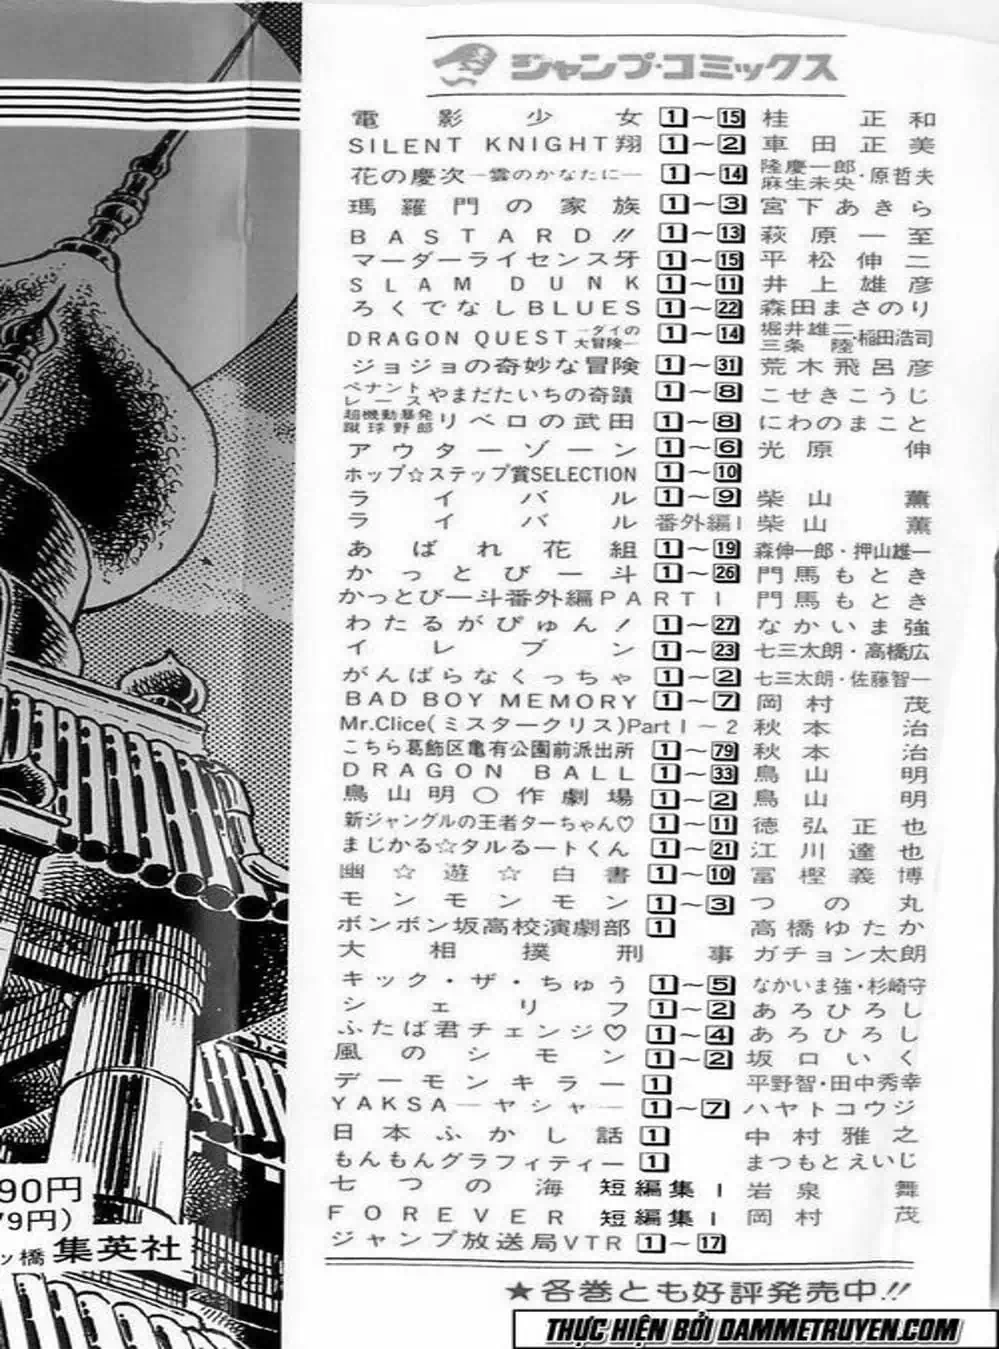 ジャンプ・コミックス
電影少女 1～15 桂正和
SILENT KNIGHT翔 1～2 車田正美
花の慶次―雲のかなたに― 1～14 隆慶一郎 麻生未央・原哲夫
瑪羅門の家族 1～3 宮下あきら
BASTARD!! 1～13 萩原一至
マーダーライセンス牙 1～15 平松伸二
SLAM DUNK 1～11 井上雄彦
ろくでなしBLUES 1～22 森田まさのり
DRAGON QUEST―ダイの大冒険― 1～14 堀井雄二 三条陸・稲田浩司
ジョジョの奇妙な冒険 1～31 荒木飛呂彦
ペナントレース やまだたいちの奇蹟 1～8 こせきこうじ
超機動暴発蹴球野郎 リベロの武田 1～8 にわのまこと
アウターゾーン 1～6 光原伸
ホップ☆ステップ賞SELECTION 1～10
ライバル 1～9 柴山薫
ライバル 番外編1 柴山薫
あばれ花組 1～19 森伸一郎・押山雄一
かっとび一斗 1～26 門馬もとき
かっとび一斗番外編PART1 門馬もとき
わたるがぴゅん! 1～27 なかいま強
イレブン 1～23 七三太朗・高橋広
がんばらなくっちゃ 1～2 七三太朗・佐藤智一
BAD BOY MEMORY 1～7 岡村茂
Mr.Clice(ミスタークリス)Part1～2 秋本治
こちら葛飾区亀有公園前派出所 1～79 秋本治
DRAGON BALL 1～33 鳥山明
鳥山明〇作劇場 1～2 鳥山明
新ジャングルの王者ターちゃん♡ 1～11 徳弘正也
まじかる☆タルるートくん 1～21 江川達也
幽☆遊☆白書 1～10 冨樫義博
モンモンモン 1～3 つの丸
ボンボン坂高校演劇部 1 高橋ゆたか
大相撲刑事 ガチョン太朗
キック・ザ・ちゅう 1～5 なかいま強・杉崎守
シェリフ 1～2 あろひろし
ふたば君チェンジ♡ 1～4 あろひろし
風のシモン 1～2 坂口いく
デーモンキラー 1 平野智・田中秀幸
YAKSA―ヤシャ― 1～7 ハヤトコウジ
日本ふかし話 1 中村雅之
もんもんグラフィティー 1 まつもとえいじ
七つの海 短編集1 岩泉舞
FOREVER 短編集1 岡村茂
ジャンプ放送局VTR 1～17
★各巻とも好評発売中!!
90円
79円)
ッ橋 集英社
THỰC HIỆN BỞI DAMMETRUYEN.COM